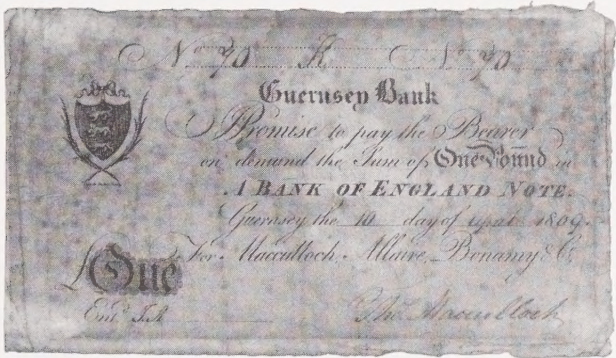 No 70 K No 70
Guernsey Bank
I Promise to pay the Bearer
on demand the Sum of One Pound in
A BANK OF ENGLAND NOTE.
Guernsey the 10 day of April 1809.
For Macculloch, Allaire, Bonamy & Co
£One
Entd
Thos Macculloch